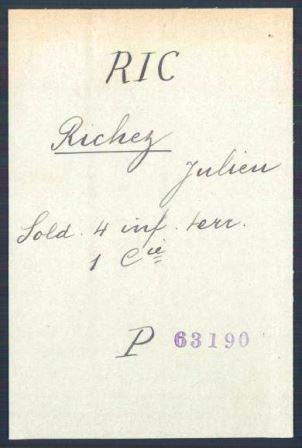 RIC
Richez
Julien
Sold. 4 inf. terr.
1 Cie
P 63190